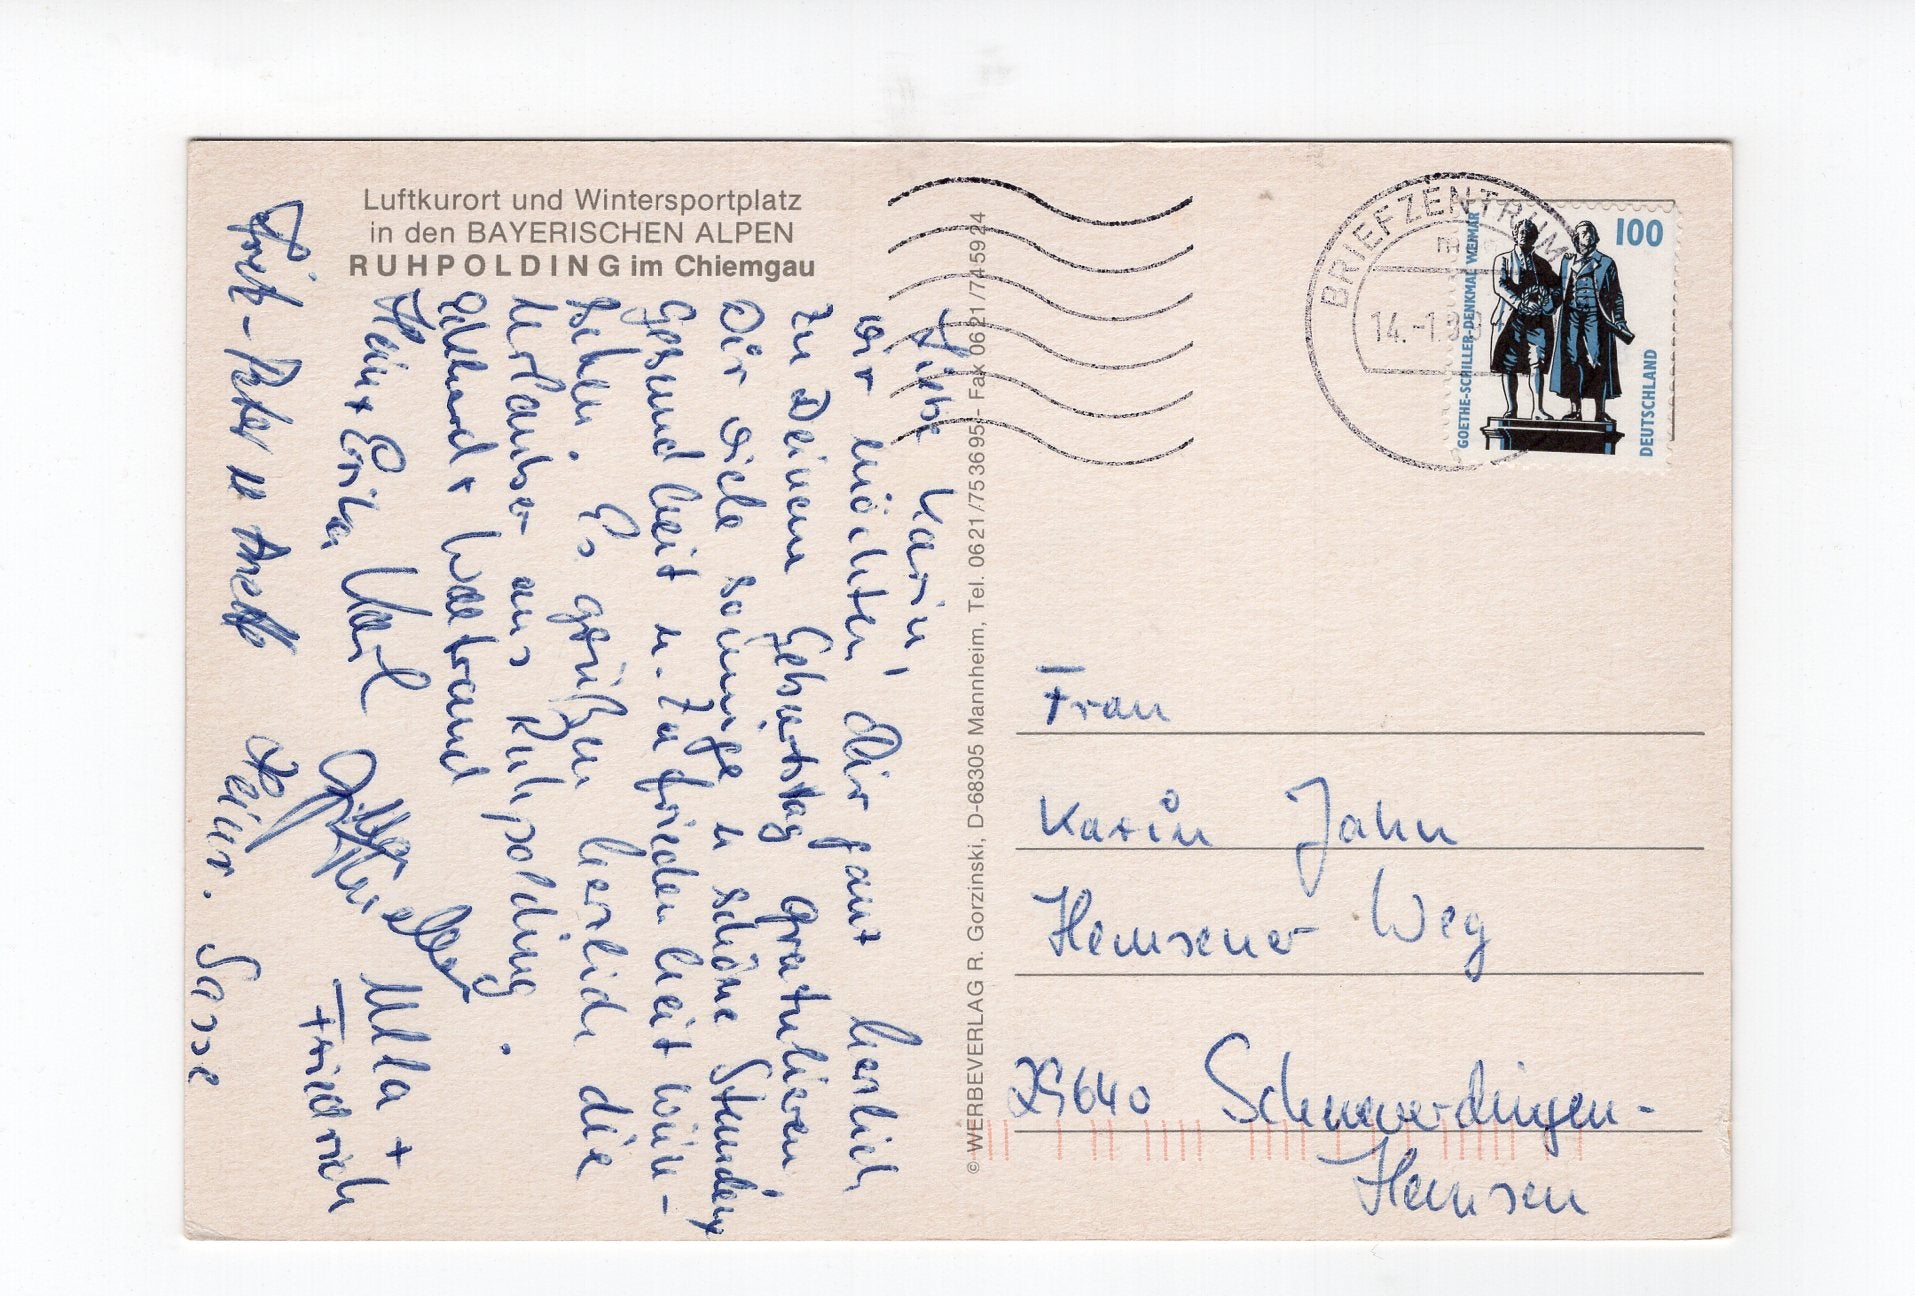 Luftkurort und Wintersportplatz
in den BAYERISCHEN ALPEN
RUHPOLDING im Chiemgau
Liebe Karin,
wir möchten Dir ganz herzlich
zu Deinem Geburtstag gratulieren,
Dir viele sonnige u schöne Stunden,
Gesundheit u. Zufriedenheit wün-
schen. Es grüßen herzlich die
Urlauber aus Ruhpolding.
Ekkehard + Waltraud
Hein + Erika Karl Ulla +
Friedrich
Fritz-Peter u Heinr. Sasse
© WERBEVERLAG R. Gorzinski, D-68305 Mannheim, Tel. 0621/753695 - Fax 0621/745924
BRIEFZENTRUM
14.-1.9
GOETHE-SCHILLER-DENKMAL WEIMAR
100
DEUTSCHLAND
Frau
Karin Jahn
Hemsener Weg
29640 Schneverdingen-
Hemsen